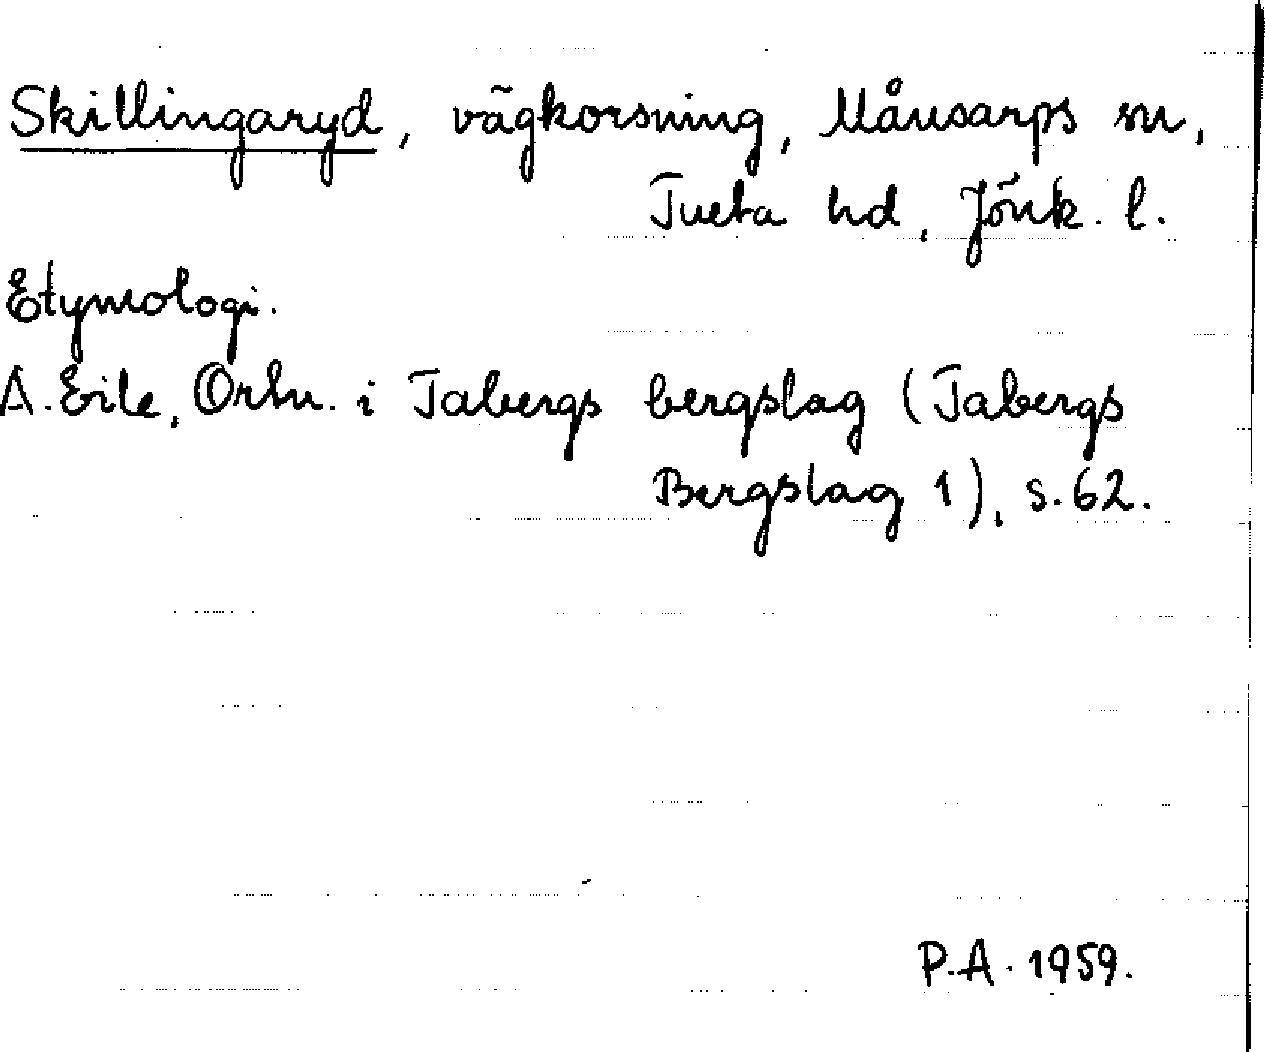 Skillingaryd, vägkorsning, Månsarps sn,
Tveta hd, Jönk. l.
Etymologi.
A. Ejle, Ortn. i Tabergs bergslag (Tabergs
Bergslag 1), s. 62.
P.A. 1959.